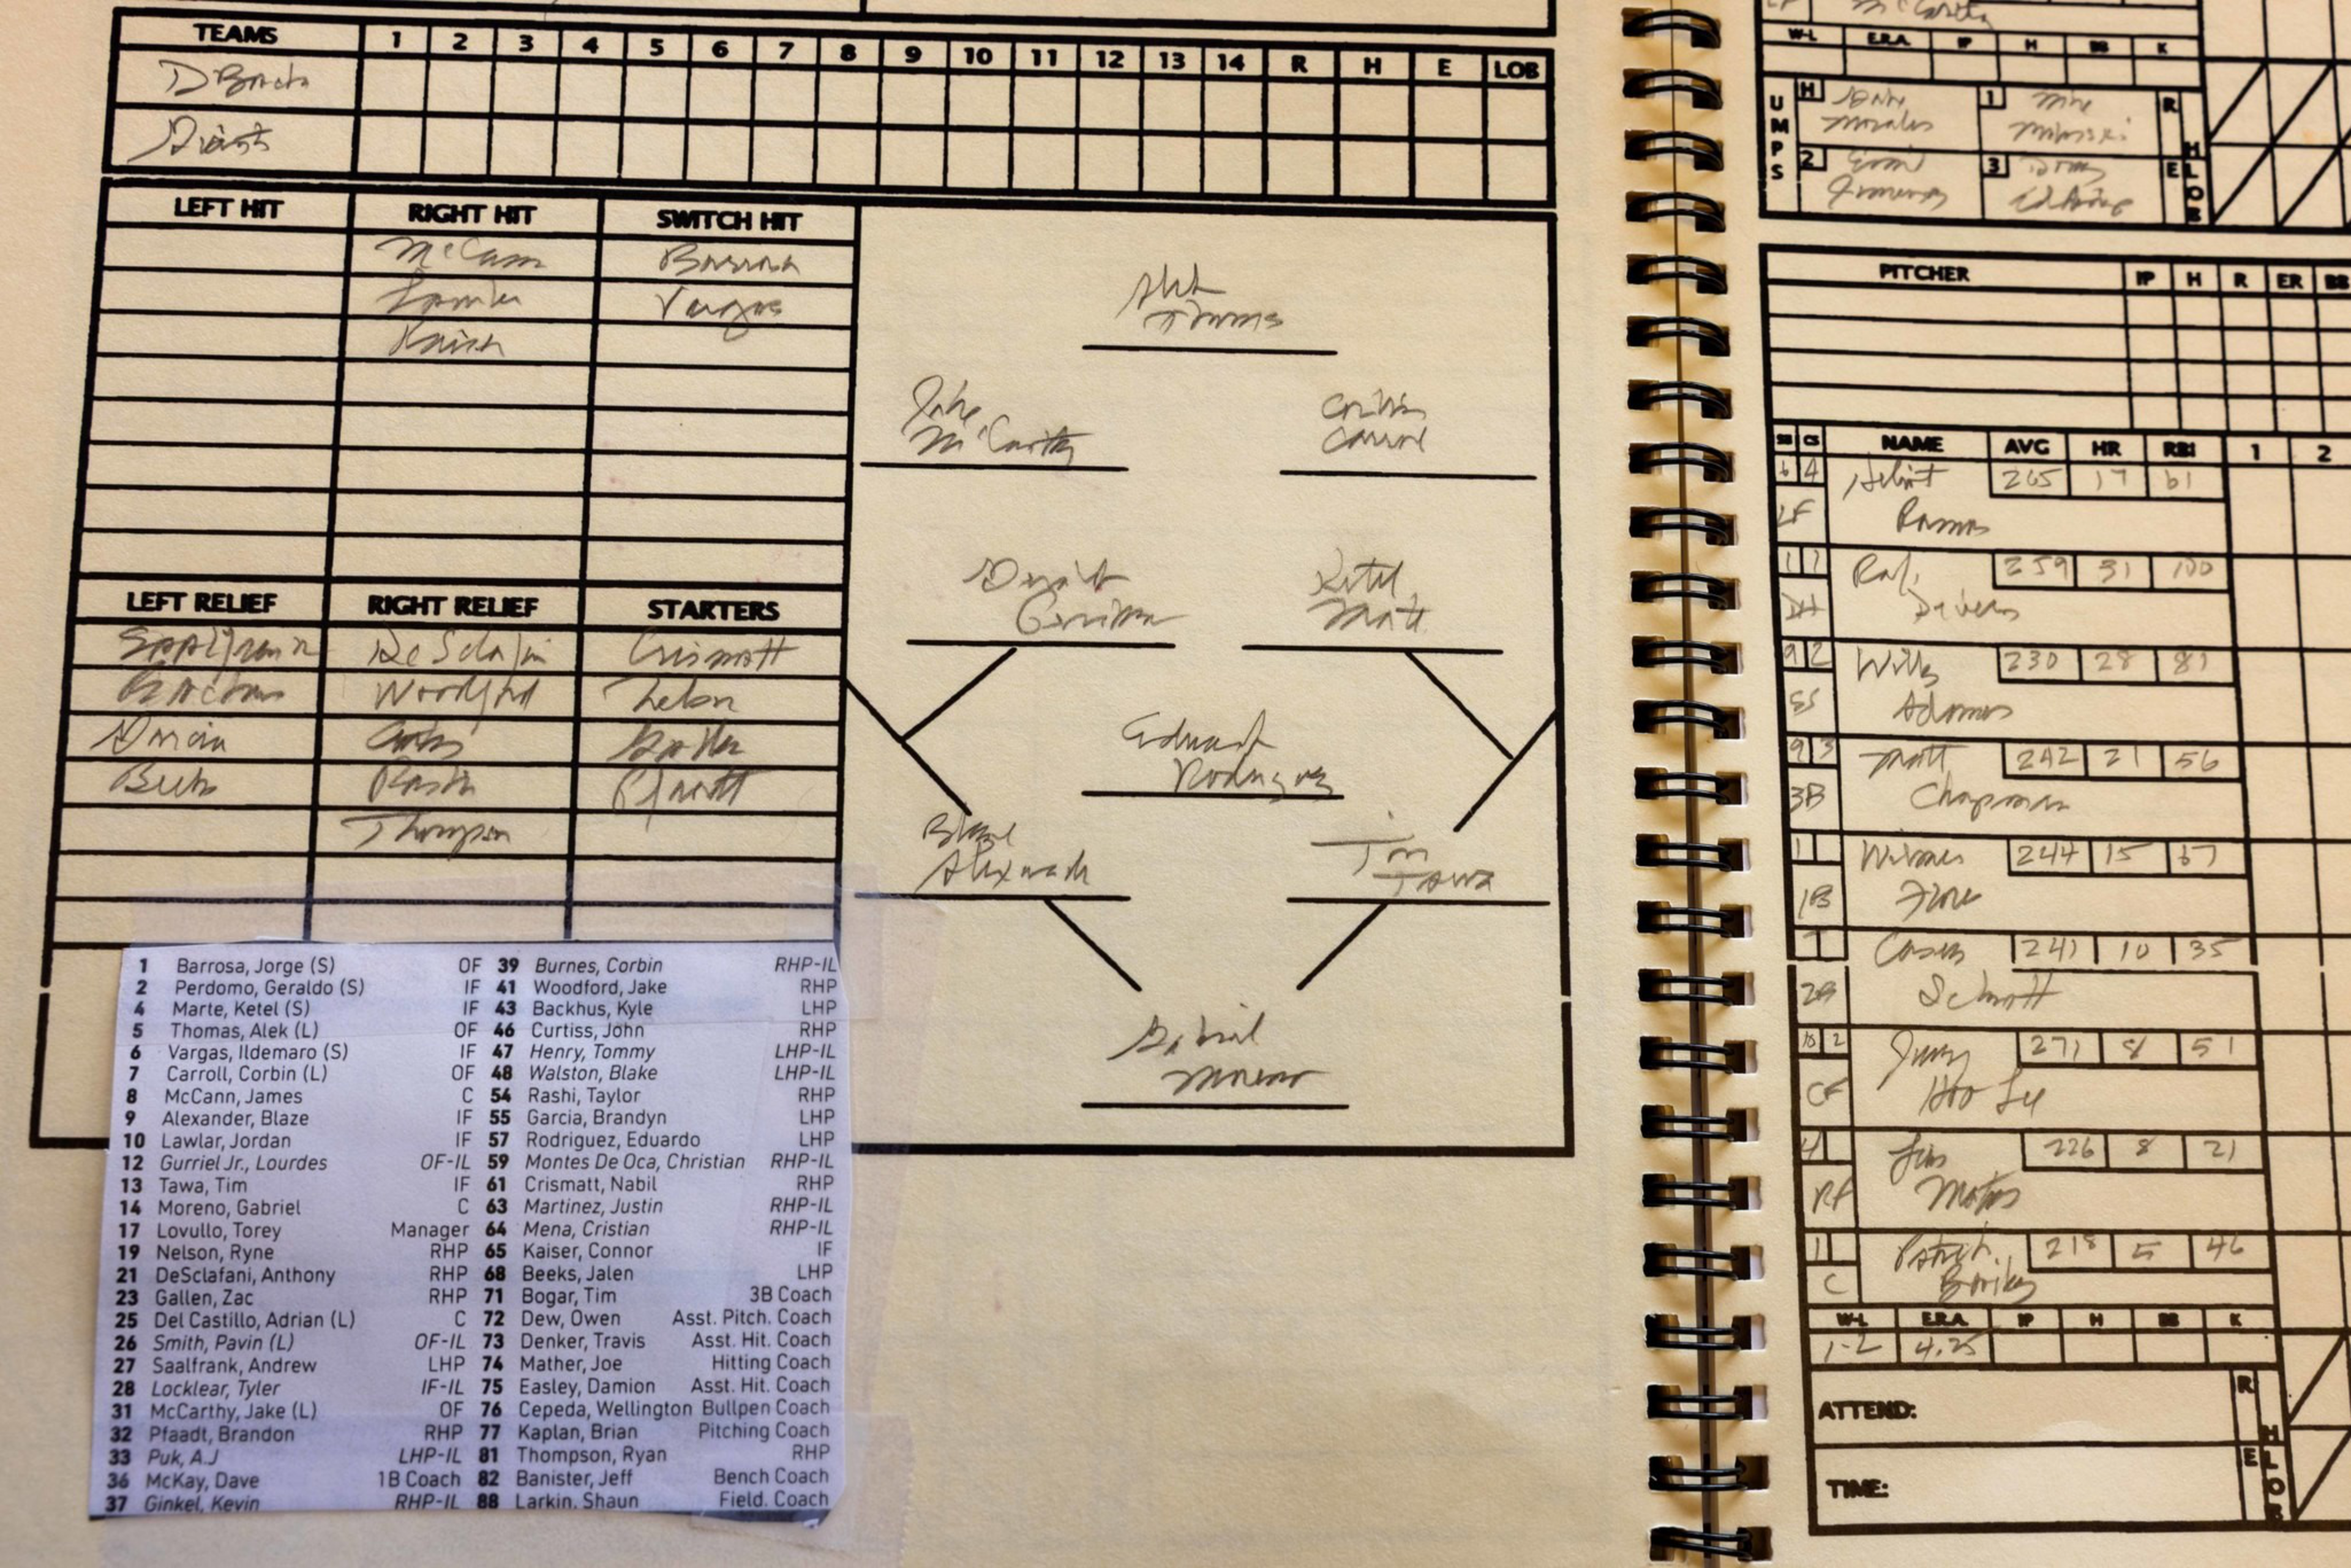 TEAMS 1 2 3 4 5 6 7 8 9 10 11 12 13 14 R H E LOB
DBacks
Giants
LEFT HIT RIGHT HIT SWITCH HIT
McCann Barrosa
Lawlar Vargas
Kaiser
LEFT RELIEF RIGHT RELIEF STARTERS
DeSclafani Crismatt
Backhus Woodford Nelson
Garcia Curtiss Gallen
Beeks Rashi Pfaadt
Thompson
Alek
Thomas
Jake
McCarthy
Corbin
Carroll
Geraldo
Perdomo
Ketel
Marte
Eduardo
Rodriguez
Blaze
Alexander
Tim
Tawa
Gabriel
Moreno
1 Barrosa, Jorge (S) OF 39 Burnes, Corbin RHP-IL
2 Perdomo, Geraldo (S) IF 41 Woodford, Jake RHP
4 Marte, Ketel (S) IF 43 Backhus, Kyle LHP
5 Thomas, Alek (L) OF 46 Curtiss, John RHP
6 Vargas, Ildemaro (S) IF 47 Henry, Tommy LHP-IL
7 Carroll, Corbin (L) OF 48 Walston, Blake LHP-IL
8 McCann, James C 54 Rashi, Taylor RHP
9 Alexander, Blaze IF 55 Garcia, Brandyn LHP
10 Lawlar, Jordan IF 57 Rodriguez, Eduardo LHP
12 Gurriel Jr., Lourdes OF-IL 59 Montes De Oca, Christian RHP-IL
13 Tawa, Tim IF 61 Crismatt, Nabil RHP
14 Moreno, Gabriel C 63 Martinez, Justin RHP-IL
17 Lovullo, Torey Manager 64 Mena, Cristian RHP-IL
19 Nelson, Ryne RHP 65 Kaiser, Connor IF
21 DeSclafani, Anthony RHP 68 Beeks, Jalen LHP
23 Gallen, Zac RHP 71 Bogar, Tim 3B Coach
25 Del Castillo, Adrian (L) C 72 Dew, Owen Asst. Pitch. Coach
26 Smith, Pavin (L) OF-IL 73 Denker, Travis Asst. Hit. Coach
27 Saalfrank, Andrew LHP 74 Mather, Joe Hitting Coach
28 Locklear, Tyler IF-IL 75 Easley, Damion Asst. Hit. Coach
31 McCarthy, Jake (L) OF 76 Cepeda, Wellington Bullpen Coach
32 Pfaadt, Brandon RHP 77 Kaplan, Brian Pitching Coach
33 Puk, A.J LHP-IL 81 Thompson, Ryan RHP
36 McKay, Dave 1B Coach 82 Banister, Jeff Bench Coach
37 Ginkel, Kevin RHP-IL 88 Larkin, Shaun Field. Coach
McCarthy
W-L E.R.A. IP H BB K
UMPS
H Gabe Morales 1 Mike Muchlinski
2 3 Doug Eddings
R H E LOB
PITCHER IP H R ER BB
SB CS NAME AVG HR RBI 1 2
6 4 Heliot 265 17 61
LF Ramos
1 1 Rafi 259 31 100
DH Devers
9 2 Willy 230 28 81
SS Adames
9 3 Matt 242 21 56
3B Chapman
1 Wilmer 244 15 67
1B Flores
1 Casey 241 10 35
2B Schmitt
10 2 Jung 271 8 51
CF Hoo Lee
4 1 Luis 226 8 21
RF Matos
1 1 Patrick 218 5 46
C Bailey
W-L E.R.A. IP H BB K
1-2 4.25
ATTEND:
TIME:
R H E LOB